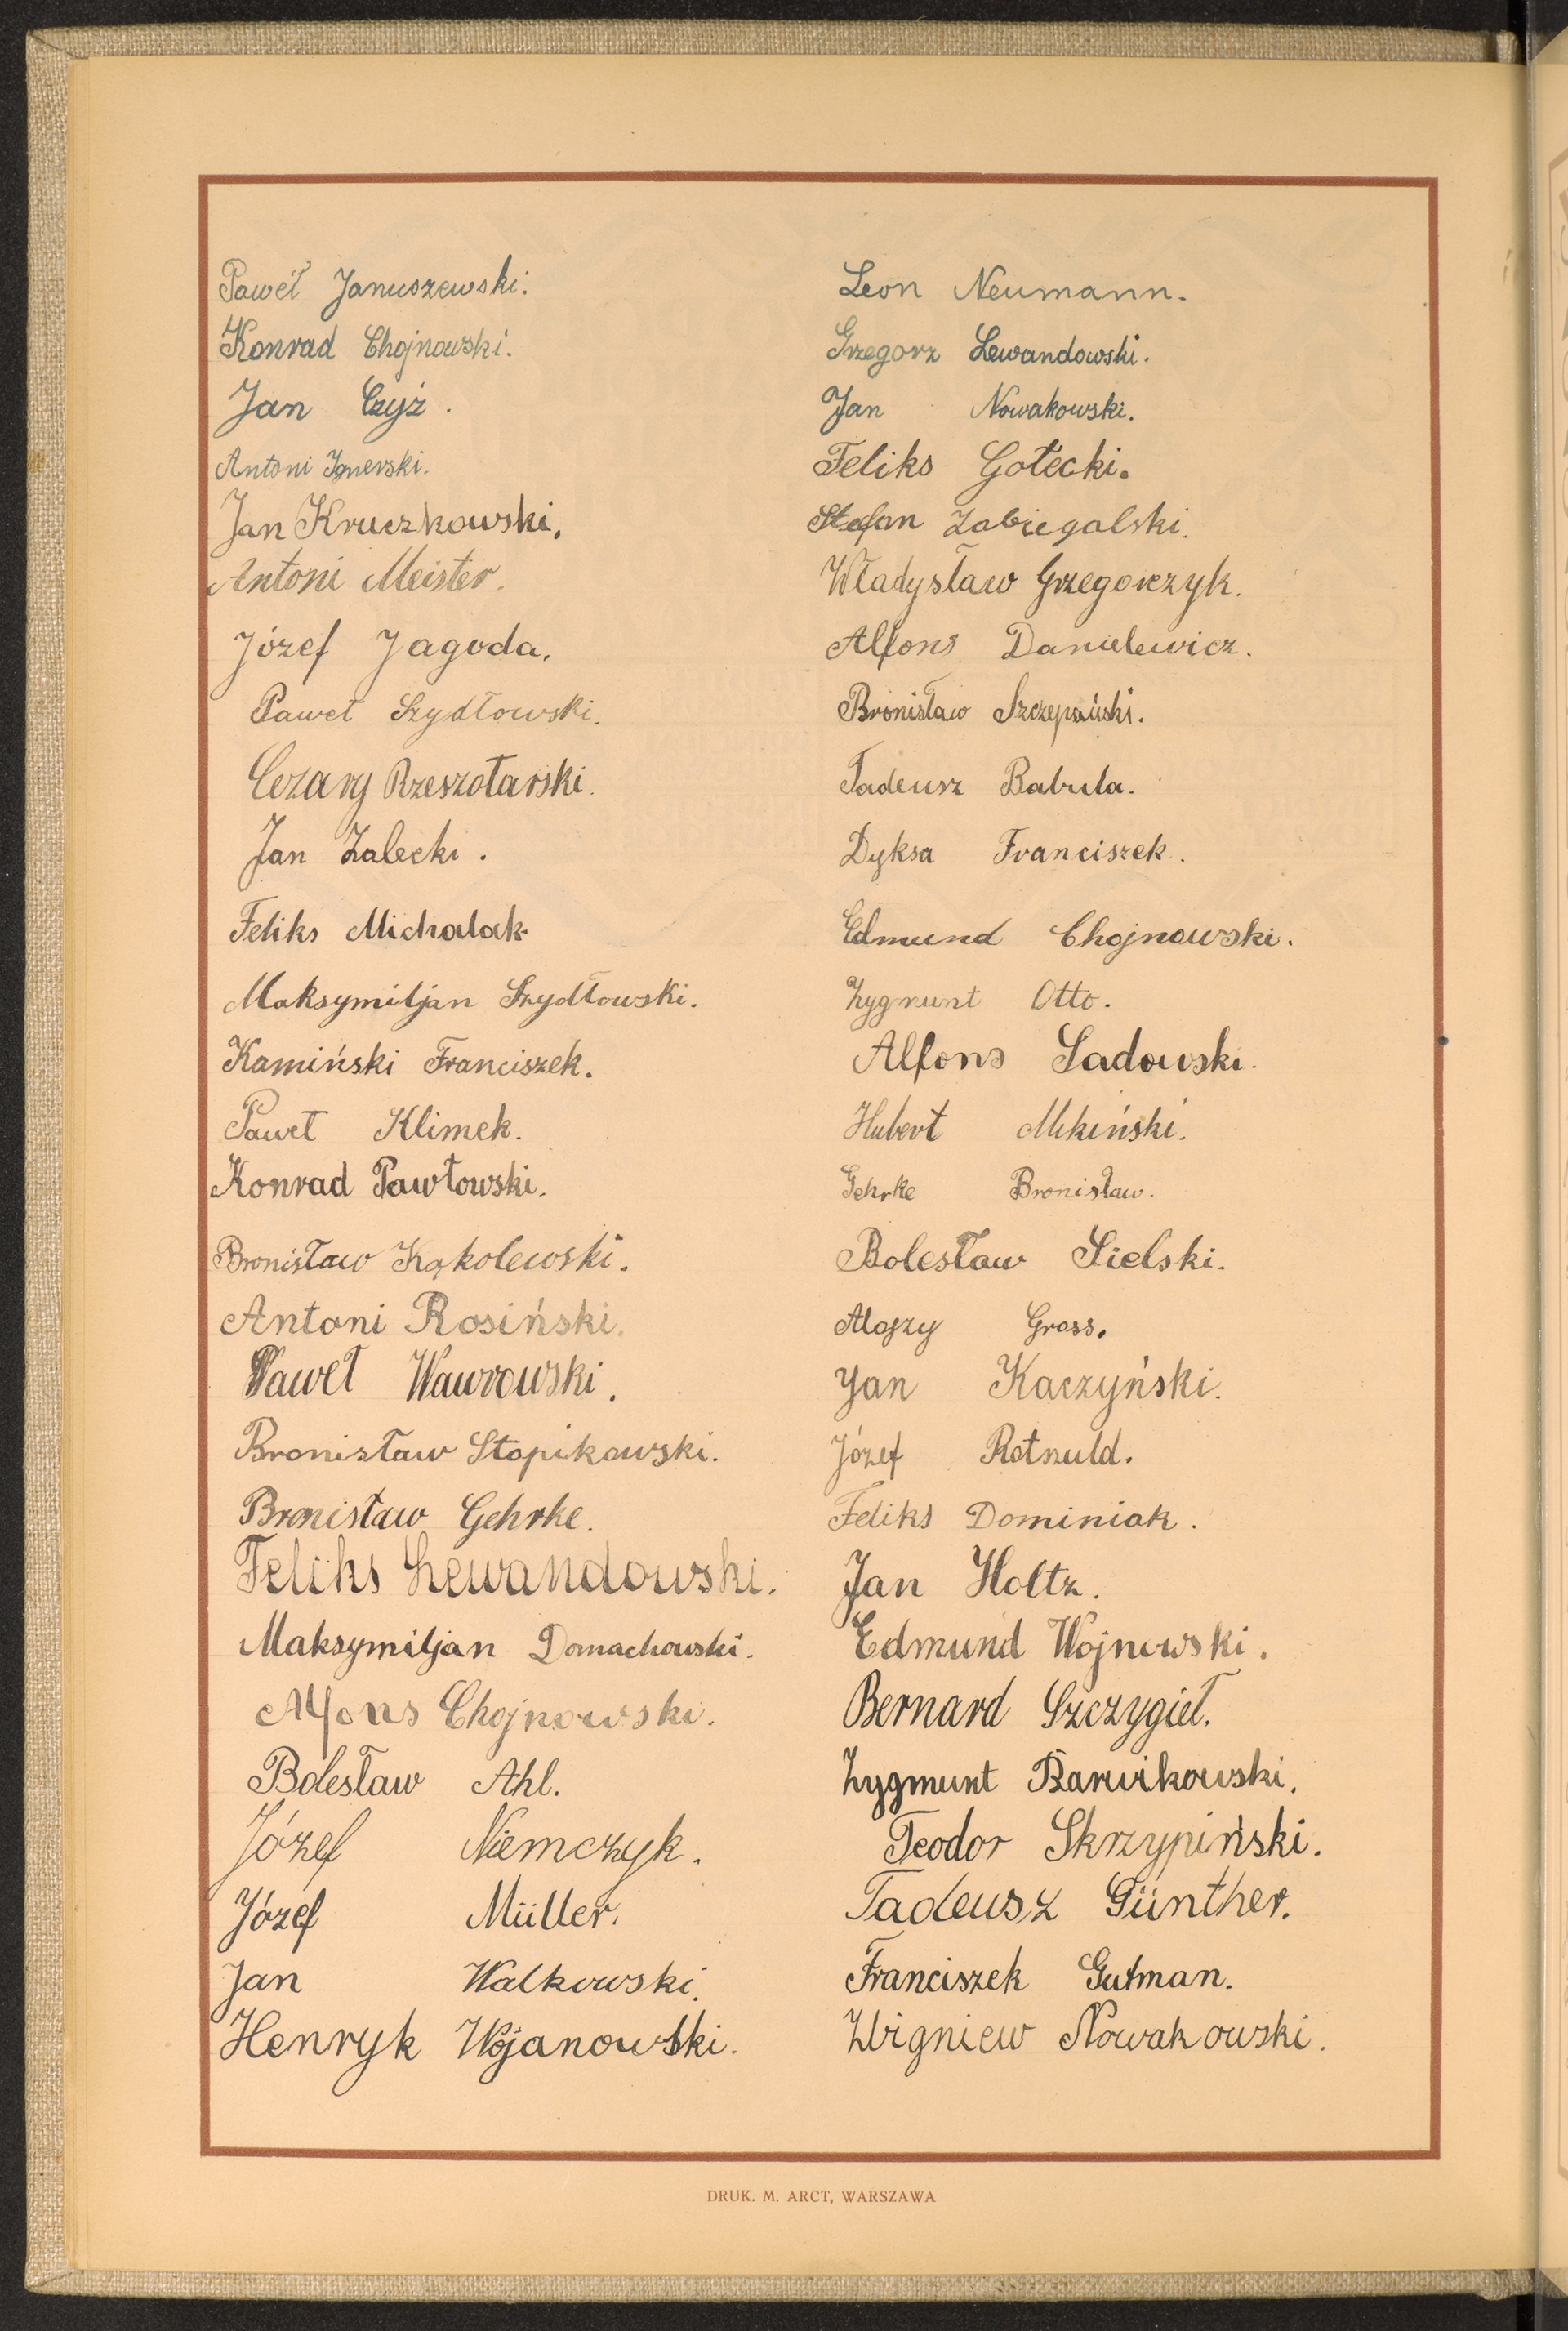 Paweł Januszewski.
Konrad Chojnowski.
Jan Czyż.
Antoni
Jan Kruczkowski.
Antoni Meister.
Józef Jagoda.
Paweł Szydłowski.
Cezary Rzeszotarski.
Jan Zalecki.
Feliks Michalak.
Maksymiljan Szydłowski.
Kamiński Franciszek.
Paweł Klimek.
Konrad Pawłowski.
Bronisław Kąkolewski.
Antoni Rosiński.
Paweł Wawrowski.
Bronisław Stopikowski.
Bronisław Gehrke.
Feliks Lewandowski.
Maksymiljan Domachowski.
Alfons Chojnowski.
Bolesław Ahl.
Józef Niemczyk.
Józef Müller.
Jan Walkowski.
Henryk Wojanowski.
Leon Neumann.
Grzegorz Lewandowski.
Jan Nowakowski.
Feliks Gołecki.
Stefan Zabiegalski.
Władysław Grzegorczyk.
Alfons Danielewicz.
Bronisław Szczepański.
Tadeusz Babula.
Dyksa Franciszek.
Edmund Chojnowski.
Zygmunt Otto.
Alfons Sadowski.
Hubert
Gehrke Bronisław.
Bolesław Sielski.
Alojzy Gross.
Jan Kaczyński.
Józef
Feliks Dominiak.
Jan Holtz.
Edmund Wojnowski.
Bernard Szczygieł.
Zygmunt Barwikowski.
Teodor Skrzypiński.
Tadeusz Günther.
Franciszek Gutman.
Zbigniew Nowakowski.
DRUK. M. ARCT, WARSZAWA